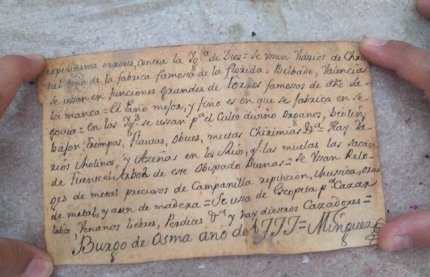 experimenta errores, contra la Yg.ª de Dios = Se usan Vidrios de Chris
tal fino de la fabrica famosa de la florida = Bilbao, Valencias
se usan en funciones grandes de Toros famosos de dro. de
la manca = El Paño mejor, y fino es en que se fabrica en Se
govia = En las Yg.s se ussan p.ª el Culto divino Organos, biolin,
bajon, trompas, flautas, Obues, muetas Chirimias &.ª Hay Va
rios Molinos, y Azeñas en los Rios, y las muelas las sacan
de Fuentearbol de este Obispado Buenas = Se Usan Relo
gs de metal precisos de Campanilla repiticion, y musica,
de metal, y aun de madera = Se usa de Escopeta p.ª Cazar
lobos, Venados liebres, Perdices &.ª y hay diestros Cazadores =
Burgo de Osma año de 1777 = Minguez